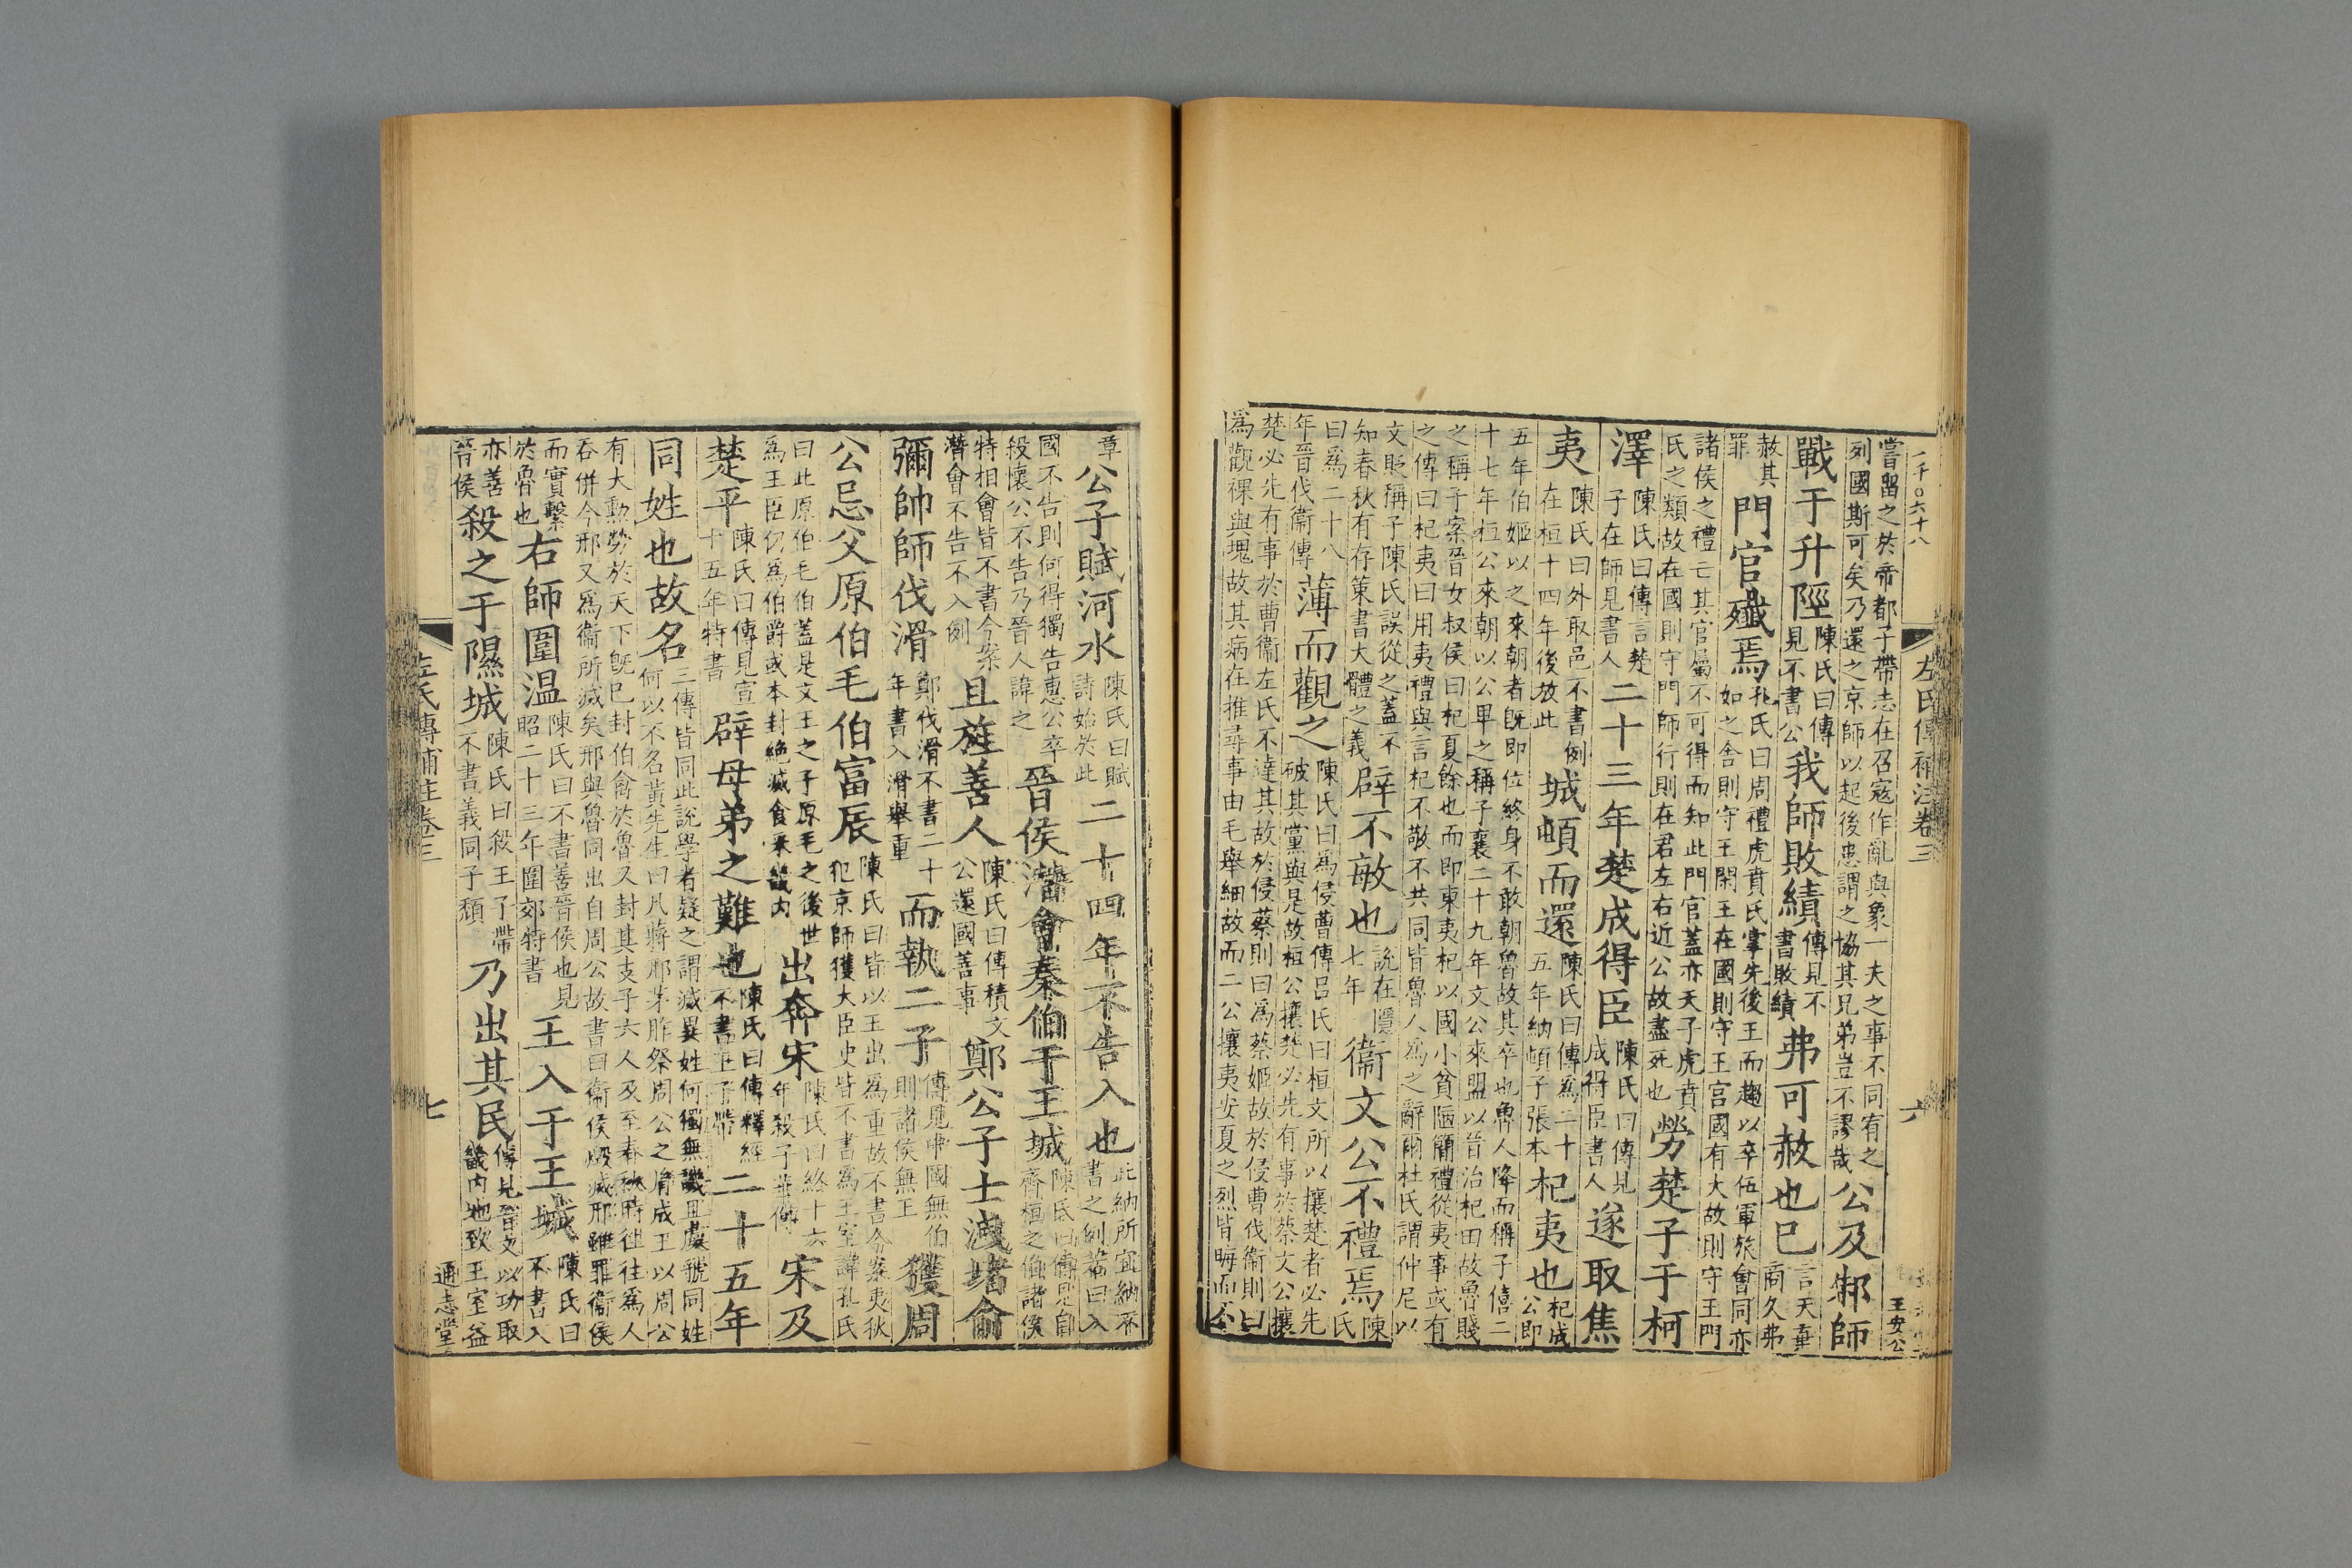 二千〇六十八
左氏傳補注卷三
六
嘗畱之於帝都子帶志在召寇作亂與象一夫之事不同有之
列國斯可矣乃還之京師以起後患謂之協其兄弟豈不謬哉
公及邾師
戰于升陘
陳氏曰傳
見不書公
我師敗績
傳見不
書敗績
弗可赦也已
言天棄
商久弗
赦其
罪
門官殲焉
孔氏曰周禮虎賁氏掌先後王而趨以卒伍軍旅會同亦
如之舍則守王閑王在國則守王宮國有大故則守王門
諸侯之禮亡其官屬不可得而知此門官蓋亦天子虎賁
氏之類故在國則守門師行則在君左右近公故盡死也
勞楚子于柯
澤
陳氏曰傳言楚
子在師見書人
二十三年楚成得臣
陳氏曰傳見
成得臣書人
遂取焦
夷
陳氏曰外取邑不書例
在桓十四年後放此
城頓而還
陳氏曰傳爲二十
五年納頓子張本
杞夷也
杞成
公即
五年伯姬以之來朝者旣即位終身不敢朝魯故其卒也魯人降而稱子僖二
十七年桓公來朝以公卑之稱子襄二十九年文公來盟以晉治杞田故魯賤
之稱子案晉女叔侯曰杞夏餘也而即東夷杞以國小貧陋簡禮從夷事或有
之傳曰杞夷曰用夷禮與言杞不敬不共同皆魯人爲之辭爾杜氏謂仲尼以
文貶稱子陳氏誤從之蓋不
知春秋有存策書大體之義
辟不敏也
說在隱
七年
衞文公不禮焉
陳
氏
曰爲二十八
年晉伐衞傳
薄而觀之
陳氏曰爲侵曹傳呂氏曰桓文所以攘楚者必先
破其黨與是故桓公攘楚必先有事於蔡文公攘
楚必先有事於曹衞左氏不達其故於侵蔡則曰爲蔡姬故於侵曹伐衞則曰
爲觀裸與塊故其病在推尋事由毛舉細故而二公攘夷安夏之烈皆晦而不
章
公子賦河水
陳氏曰賦
詩始於此
二十四年不告入也
此納所宜納不
書之例若曰入
國不告則何得獨告惠公卒
殺懷公不告乃晉人諱之
晉侯濳會秦伯于王城
陳氏曰傳見自
齊桓之伯諸侯
特相會皆不書今案
濳會不告不入例
且旌善人
陳氏曰傳積文
公還國善事
鄭公子士洩堵俞
彌帥師伐滑
鄭伐滑不書二十
年書入滑舉重
而執二子
傳見中國無伯
則諸侯無王
獲周
公忌父原伯毛伯富辰
陳氏曰皆以王出爲重故不書今案夷狄
犯京師獲大臣史皆不書爲王室諱孔氏
曰此原伯毛伯蓋是文王之子原毛之後世
爲王臣仍爲伯爵或本封絶滅食采畿内
出奔宋
陳氏曰終十六
年殺子華傳
宋及
楚平
陳氏曰傳見宣
十五年特書
辟母弟之難也
陳氏曰傳釋經
不書王子帶
二十五年
同姓也故名
三傳皆同此說學者疑之謂滅異姓何獨無譏且虞虢同姓
何以不名黃先生曰凡蔣邢茅胙祭周公之胤成王以周公
有大勲勞於天下旣已封伯禽於魯又封其支子六人及至春秋時徃徃爲人
吞併今邢又爲衞所滅矣邢與魯同出自周公故書曰衞侯燬滅邢雖罪衞侯
而實繫
於魯也
右師圍温
陳氏曰不書善晉侯也見
昭二十三年圍郊特書
王入于王城
陳氏曰
不書入
亦善
晉侯
殺之于隰城
陳氏曰殺王子帶
不書義同子頹
乃出其民
傳見晉文以功取
畿内地致王室益
左氏傳補注卷三
七
通志堂